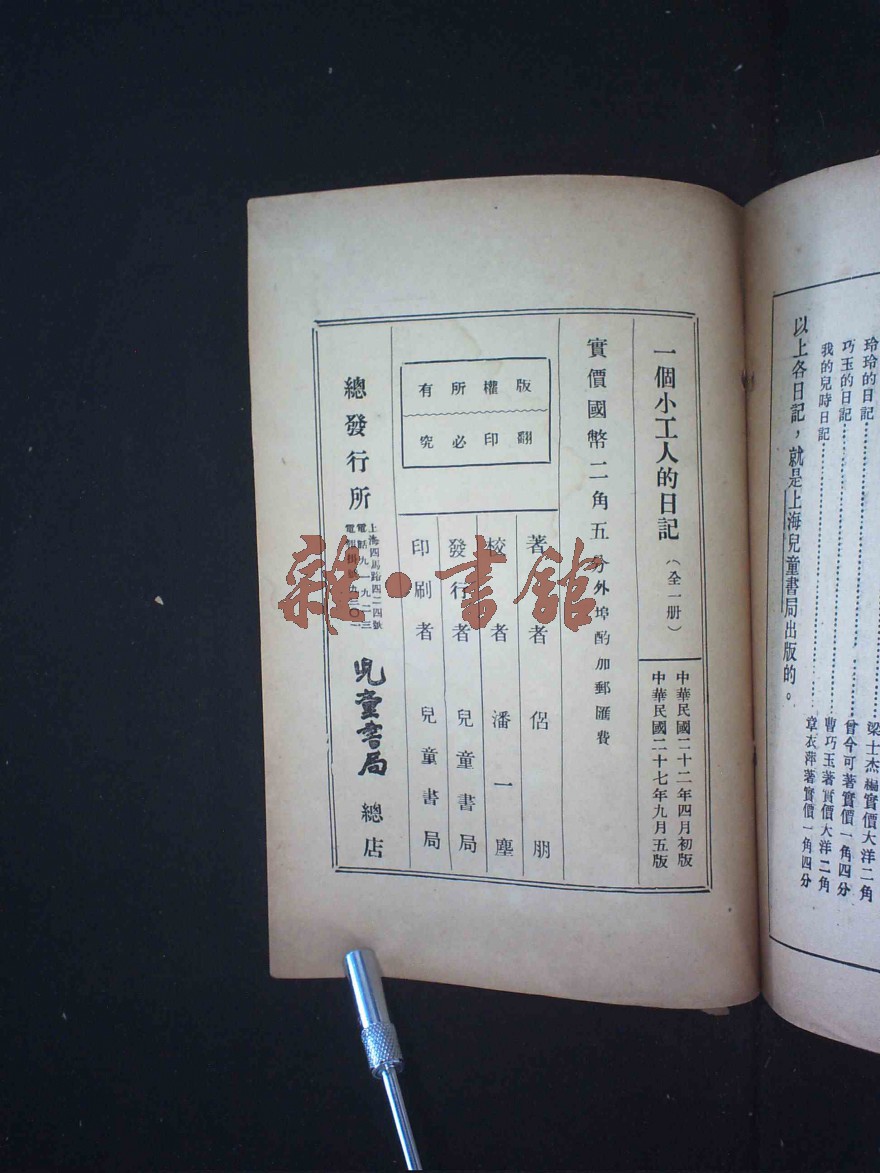 玲玲的日記……梁士杰編實價大洋二角
巧玉的日記……曾今可著實價一角四分
我的兒時日記……曹巧玉著實價大洋二角
章衣萍著實價一角四分
以上各日記，就是上海兒童書局出版的。
中華民國二十二年四月初版
中華民國二十七年九月五版
一個小工人的日記（全一册）
實價國幣二角五分外埠酌加郵匯費
版權所有
翻印必究
著者 侶朋
校者 潘一塵
發行者 兒童書局
印刷者 兒童書局
總發行所
上海四馬路四二四號
電話九一九二三
兒童書局 總店
雜·書館